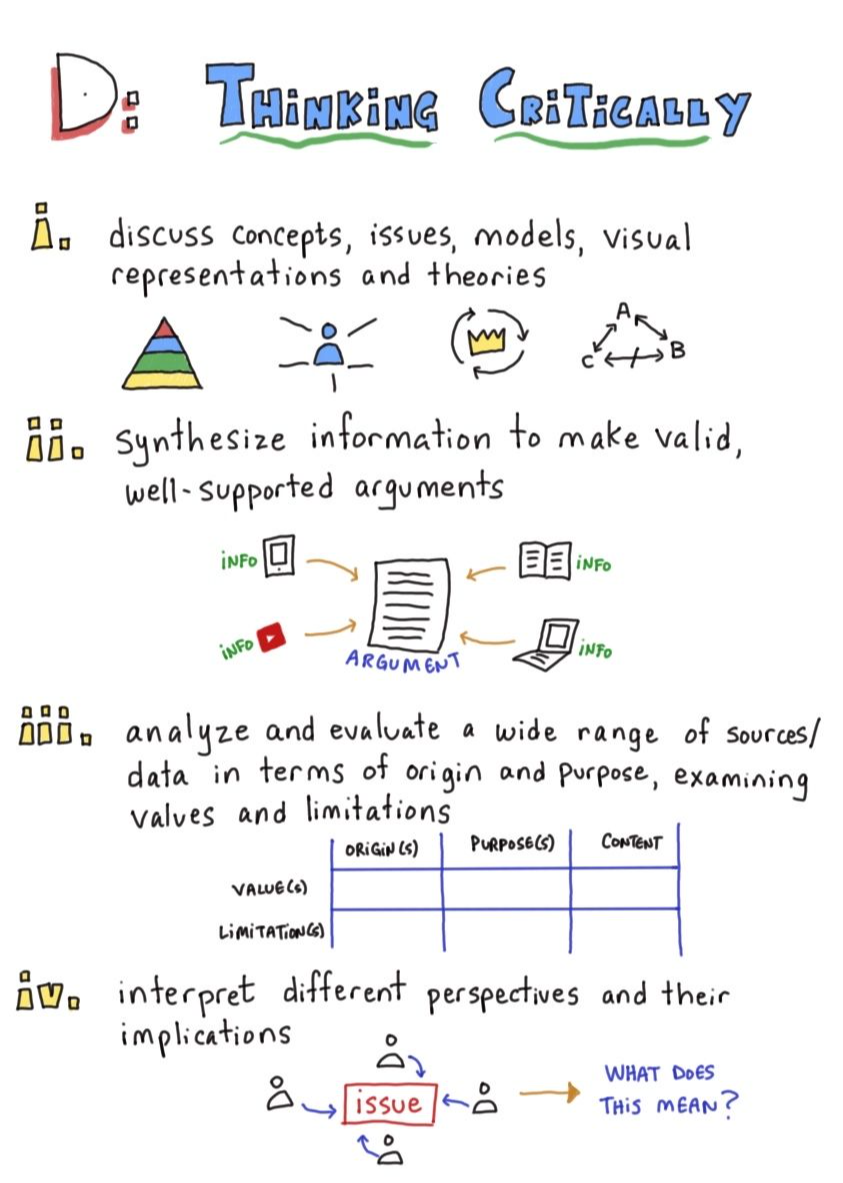 D: THiNKiNG CRiTiCALLY
i. discuss concepts, issues, models, visual
representations and theories
A
B
C
ii. synthesize information to make valid,
well-supported arguments
iNFO
iNFO
iNFO
iNFO
ARGUMENT
iii. analyze and evaluate a wide range of sources/
data in terms of origin and purpose, examining
values and limitations
ORiGiN(S) PURPOSE(S) CONTENT
VALUE(S)
LiMiTATiON(S)
iv. interpret different perspectives and their
implications
issue
WHAT DOES
THiS MEAN?